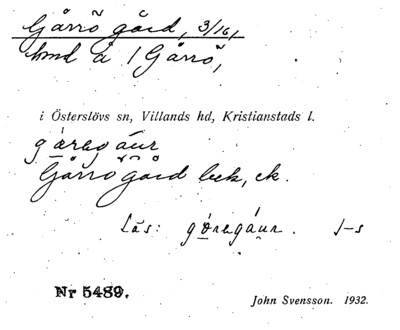 Gårrö gård, 3/16,
hmd å 1 Gårrö,
i Österslövs sn, Villands hd, Kristianstads l.
gåragáur
Gårrö gård bek, ek.
Läs: góragáur. J-s
Nr 5489.
John Svensson. 1932.